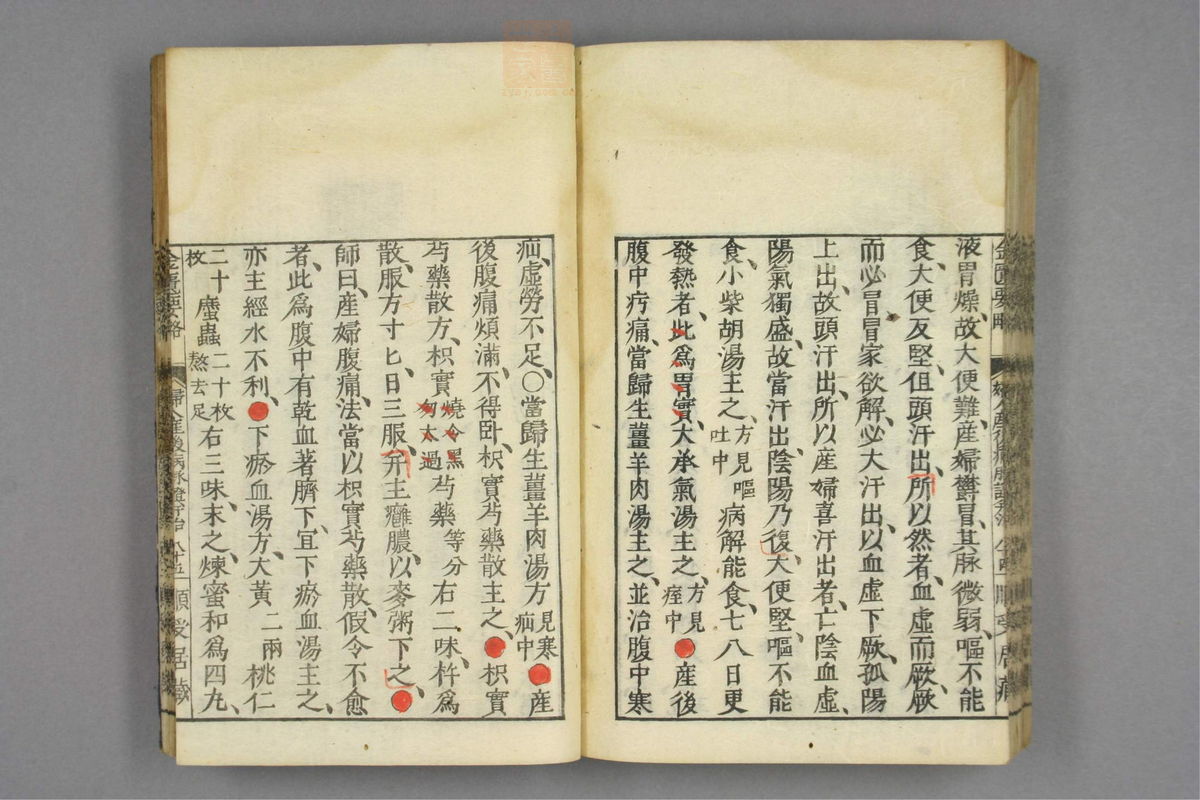 液胃燥、故大便難、産婦欝冒、其脉微弱、嘔不能
食、大便反堅、但頭汗出、所以然者、血虚而厥、厥
而必冒、冒家欲解、必大汗出、以血虚下厥、孤陽
上出、故頭汗出、所以産婦喜汗出者、亡陰血虚、
陽氣獨盛、故當汗出、陰陽乃復、大便堅、嘔不能
食、小柴胡湯主之、方見嘔吐中 病解能食、七八日更
發熱者、此爲胃實、大承氣湯主之、方見痓中 ●産後
腹中㽲痛、當歸生薑羊肉湯主之、並治腹中寒
疝、虚勞不足、○當歸生薑羊肉湯方 見寒疝中 ●産
後腹痛、煩滿、不得卧、枳實芍藥散主之、●枳實
芍藥散方、枳實 燒令黑勿太過 芍藥 等分 右二味、杵爲
散、服方寸匕、日三服、并主癰膿、以麥粥下之、●
師曰、産婦腹痛、法當以枳實芍藥散、假令不愈
者、此爲腹中有乾血著臍下、宜下瘀血湯主之、
亦主經水不利、●下瘀血湯方、大黃 二兩 桃仁
二十枚 䗪蟲 二十枚熬去足 右三味、末之、煉蜜和爲四丸、